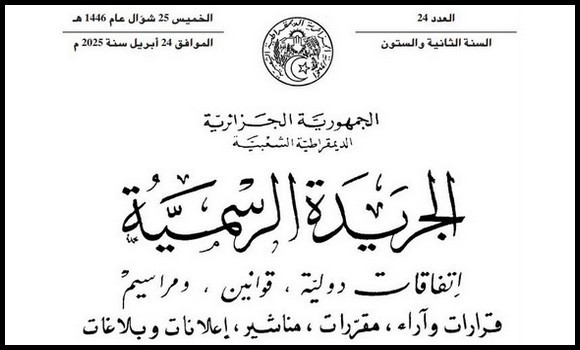 العدد 24
السنة الثانية والستون
الخميس 25 شوّال عام 1446 هـ
الموافق 24 أبريل سنة 2025 م
الجمهوريّة الجزائريّة
الديمقراطيّة الشعبيّة
الجريدة الرسميّة
إتفاقات دوليّة ، قوانين ، ومراسيم
قرارات وآراء ، مقرّرات ، مناشير ، إعلانات وبلاغات